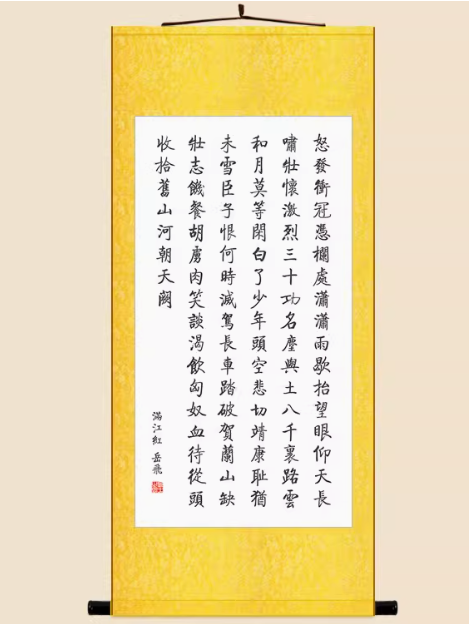 怒發衝冠憑欄處瀟瀟雨歇抬望眼仰天長
嘯壯懷激烈三十功名塵與土八千裏路雲
和月莫等閑白了少年頭空悲切靖康耻猶
未雪臣子恨何時滅駕長車踏破賀蘭山缺
壯志饑餐胡虜肉笑談渴飲匈奴血待從頭
收拾舊山河朝天闕
滿江紅 岳飛